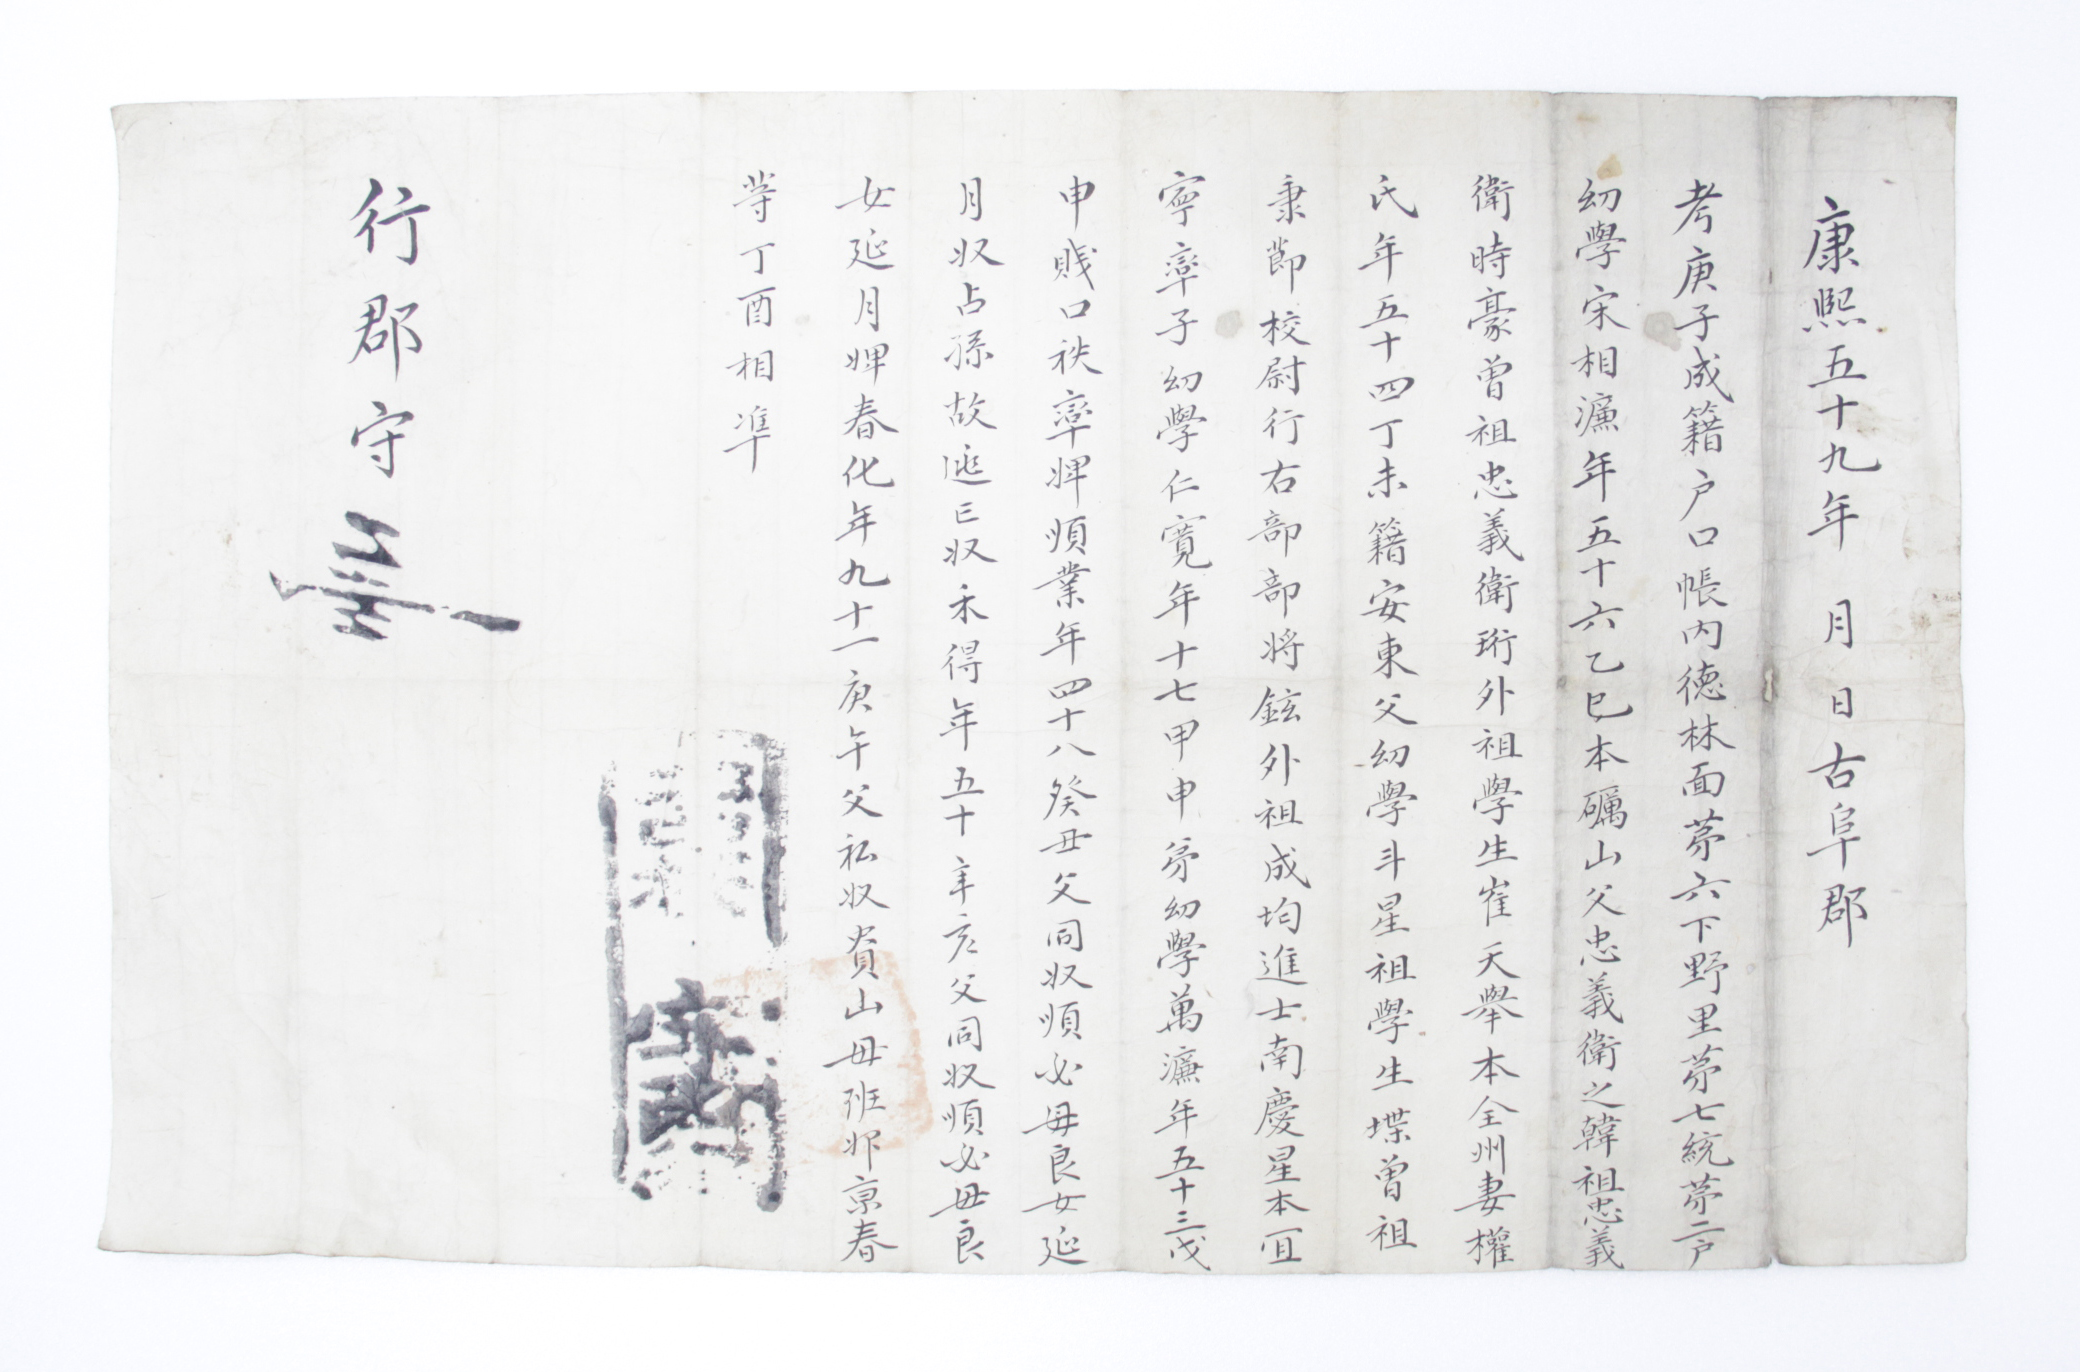 康熙五十九年 月 日古阜郡
考庚子成籍戶口帳內德林面苐六下野里苐七統苐二戶
幼學宋相濂年五十六乙巳本礪山父忠義衛之韓祖忠義
衛時豪曾祖忠義衛珩外祖學生崔天擧本全州妻權
氏年五十四丁未籍安東父幼學斗星祖學生堞曾祖
秉節校尉行右部部將鉉外祖成均進士南慶星本冝
寧率子幼學仁寬年十七甲申苐幼學萬濂年五十三戊
申賤口秩率婢順業年四十八癸丑父同奴順必母良女延
月奴占孫故逃亡奴禾得年五十辛亥父同奴順必母良
女延月婢春化年九十一庚午父私奴貴山母班婢京春
等丁酉相準
行郡守